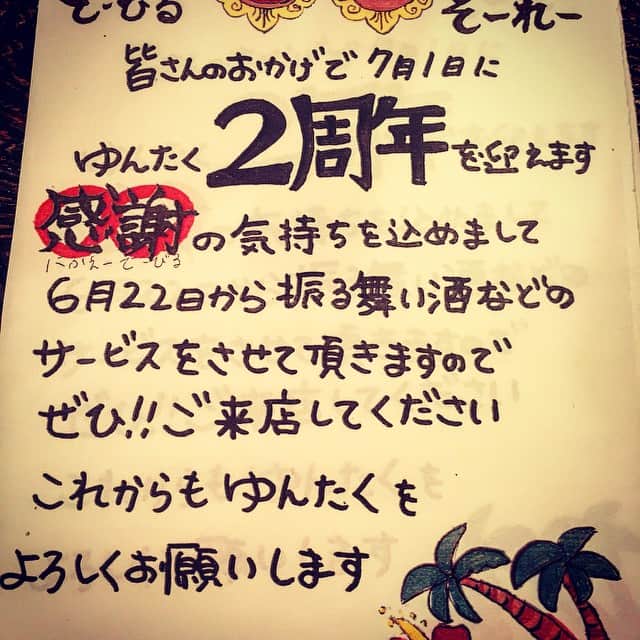 でーびる
そーれー
皆さんのおかげで7月1日に
ゆんたく2周年を迎えます
感謝の気持ちを込めまして
にふぇーでーびる
6月22日から振る舞い酒などの
サービスをさせて頂きますので
ぜひ!!ご来店してください
これからもゆんたくを
よろしくお願いします